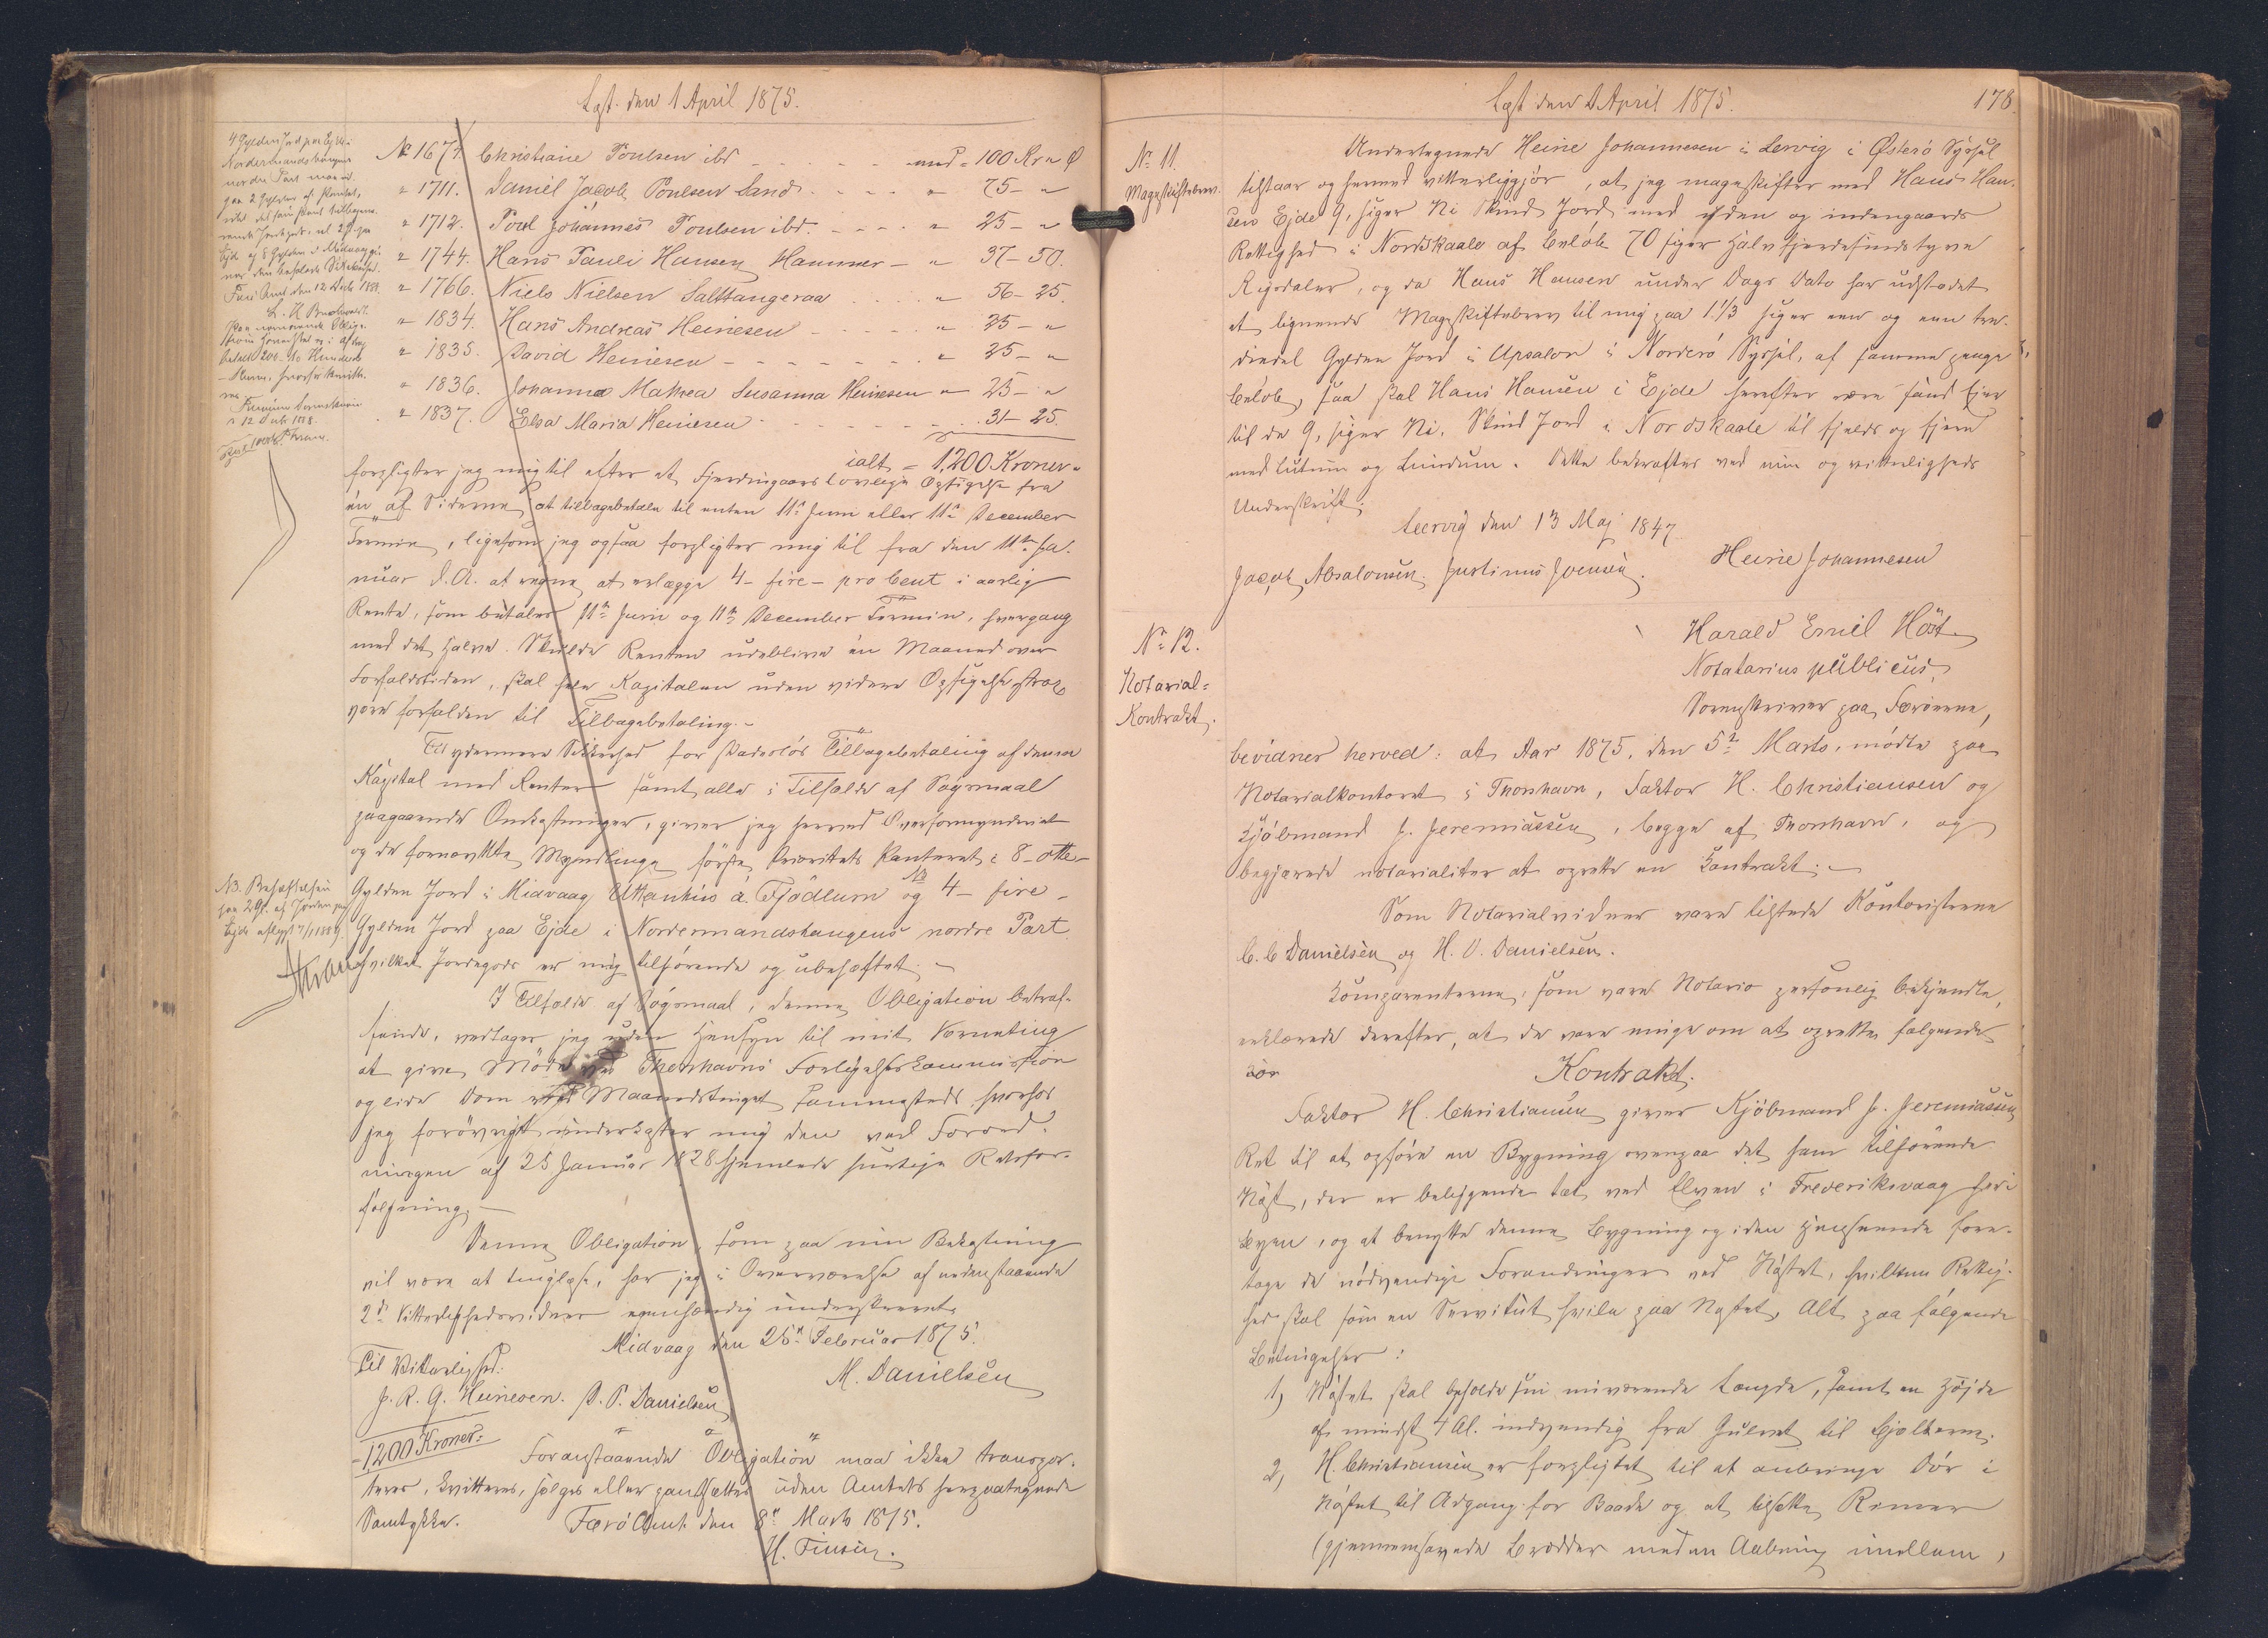 Lgst. den 1 April 1875.
4 Gylden Jord paa Ejde i
Nordermandshaugens
nordre Part
paa 2 Gylden af Pantet,
Ejde og 8 Gylden i Midvaag
Færö Amt den 12 Decb 1858.
N. 1677. Christiane Poulsen ibd - - - - - med = 100 Kr " Ø
" 1711. Daniel Jacob Poulsen Sand - - - - " 75 - "
" 1712. Poul Johannes Poulsen ibd. - - - - " 25 - "
" 1744. Hans Pauli Hansen Hammer - " 37 - 50.
" 1766. Niels Nielsen Salttangeraa . . . . " 56 - 25.
" 1834. Hans Andreas Heinesen - - - - - " 25 - "
" 1835. David Heinesen - - - - - - - " 25 - "
" 1836. Johanna Mathea Susanna Heinesen " 25 - "
" 1837. Elsa Maria Heinesen - - - - - - - 31 - 25.
ialt = 1,200 Kroner "
forpligter jeg mig til efter et Fjerdingaars lovlige Opsigelse fra
én af Siderne at tilbagebetale til enten 11te Juni eller 11te December
Termin, ligesom jeg ogsaa forpligter mig til fra den 11te Ja-
nuar d. A. at regne at erlægge 4 - fire - pro Cent i aarlig
Rente, som betales 11te Juni og 11te December Termin, hvergang
med det halve. Skulde Renten udeblive én Maaned over
Forfaldstiden, skal hele Kapitalen uden videre Opsigelse strax
være forfalden til Tilbagebetaling. -
Til ydermere Sikkerhed for skadeslös Tilbagebetaling af denne
Kapital med Renter samt alle i Tilfælde af Sögsmaal
paagaaende Omkostninger, giver jeg herved Overformynderiet
og de fornævnte Myndlinge förste Prioritets Panteret i 8 - otte -
NB. Behæftelsen
paa 2 Gl. af Jorden paa
Ejde aflyst 7/1 1889.
Gylden Jord i Midvaag Uttanhus á Fjödlum og NB 4 - fire -
Gylden Jord paa Ejde i Nordermandshaugens nordre Part
hvilket Jordegods er mig tilhörende og ubehæftet. -
I Tilfælde af Sögsmaal, denne Obligation betræf-
fende, vedtager jeg uden Hensyn til mit Værneting
at give Möde ved Thorshavns Forligelseskommission
og lide Dom ved Maanedstinget sammesteds hvorhos
jeg forövrigt underkaster mig den ved Forord-
ningen af 25 Januar 1828 hjemlede hurtige Retsfor-
fölgning. -
Denne Obligation, som paa min Bekostning
vil være at tinglæse, har jeg i Overværelse af nedenstaaende
2de Vitterlighedsvidner egenhændig underskrevet.
Midvaag den 25te Februar 1875.
Til Vitterlighed:
M. Danielsen
J. R. G. Heinesen. D. P. Danielsen
- 1200 Kroner:
Foranstaaende Obligation maa ikke transpor-
teres, kvitteres, sælges eller pantsættes uden Amtets herpaategnede
Samtykke. Færö Amt den 8te Marts 1875.
H. Finsen.
Lgst den 1 April 1875. 178
N. 11.
Mageskiftebrev.
Undertegnede Heine Johannesen i Lervig i Österö Syssel
tilstaar og herved vitterliggjör, at jeg mageskifter med Hans Han-
sen Ejde 9, siger Ni Skind Jord med uden og indengaards
Rettighed i Nordskaale af Belöb 70 siger halvfjerdesindstyve
Rigsdaler, og da Hans Hansen under Dags Dato har udstedet
et lignende Mageskiftebrev til mig paa 1 1/3 siger een og een tre-
diedel Gylden Jord i Upsalon i Norderö Syssel, af samme penge
belöb, saa skal Hans Hansen i Ejde herefter være sand Ejer
til de 9, siger Ni, Skind Jord i Nordskaale til Fjelds og Fjære
med Lutum og Lundum. Dette bekræftes ved min og vitterligheds
Underskrift.
Leervig den 13 Maj 1847.
Heine Johannesen
Jacob Absalonsen. Justinus Joensen.
N. 12.
Notarial=
Kontrakt.
Harald Emil Höst
Notatarius publicus,
Sorenskriver paa Færöerne,
bevidner herved: at Aar 1875, den 5te Marts, mödte paa
Notarialkontoret i Thorshavn, Faktor H. Christiansen og
Kjöbmand J. Jeremiassen, begge af Thorshavn, og
begjærede notarialiter at oprette en Kontrakt. -
Som Notarialvidner vare tilstede Kontoristerne
C. C Danielsen og H. D. Danielsen.
Komparenterne, som vare Notario personlig bekjendte,
erklærede derefter, at de vare enige om at oprette følgende
Kontrakt.
Faktor H. Christiansen giver Kjöbmand J. Jeremiassen
Ret til at opföre en Bygning ovenpaa det ham tilhörende
Nöst, der er beliggende tæt ved Elven i Frederiksvaag her i
Byen, og at benytte denne Bygning og i den Henseende fore-
tage de nödvendige Forandringer ved Nöstet, hvilken Rettig-
hed skal som en Servitut hvile paa Nöstet, Alt paa fölgende
Betingelser:
1) Nöstet skal beholde sin nuværende Længde, samt en Höjde
af mindst 4 Al. indvendig fra Gulvet til Bjælkerne.
2) H. Christiansen er forpligtet til at anbringe Dör i
Nöstet til Adgang for Baade og at tilsætte Rimer
(gjennemsavede Brædder med en Aabning imellem,